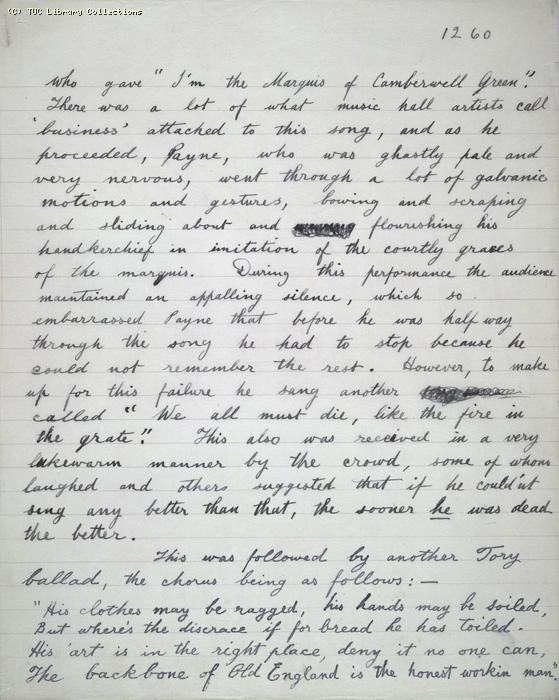 (C) TUC Library Collections
1260
who gave "I'm the Marquis of Camberwell Green".
There was a lot of what music hall artists call
'business' attached to this song, and as he
proceeded, Payne, who was ghastly pale and
very nervous, went through a lot of galvanic
motions and gestures, bowing and scraping
and sliding about and flourishing his
handkerchief in imitation of the courtly graces
of the marquis. During this performance the audience
maintained an appalling silence, which so
embarrassed Payne that before he was half way
through the song he had to stop because he
could not remember the rest. However, to make
up for this failure he sang another
called "We all must die, like the fire in
the grate". This also was received in a very
lukewarm manner by the crowd, some of whom
laughed and others suggested that if he could'nt
sing any better than that, the sooner he was dead
the better.
This was followed by another Tory
ballad, the chorus being as follows:—
"His clothes may be ragged, his hands may be soiled,
But where's the discrace if for bread he has toiled.
His 'art is in the right place, deny it no one can,
The backbone of Old England is the honest workin man".